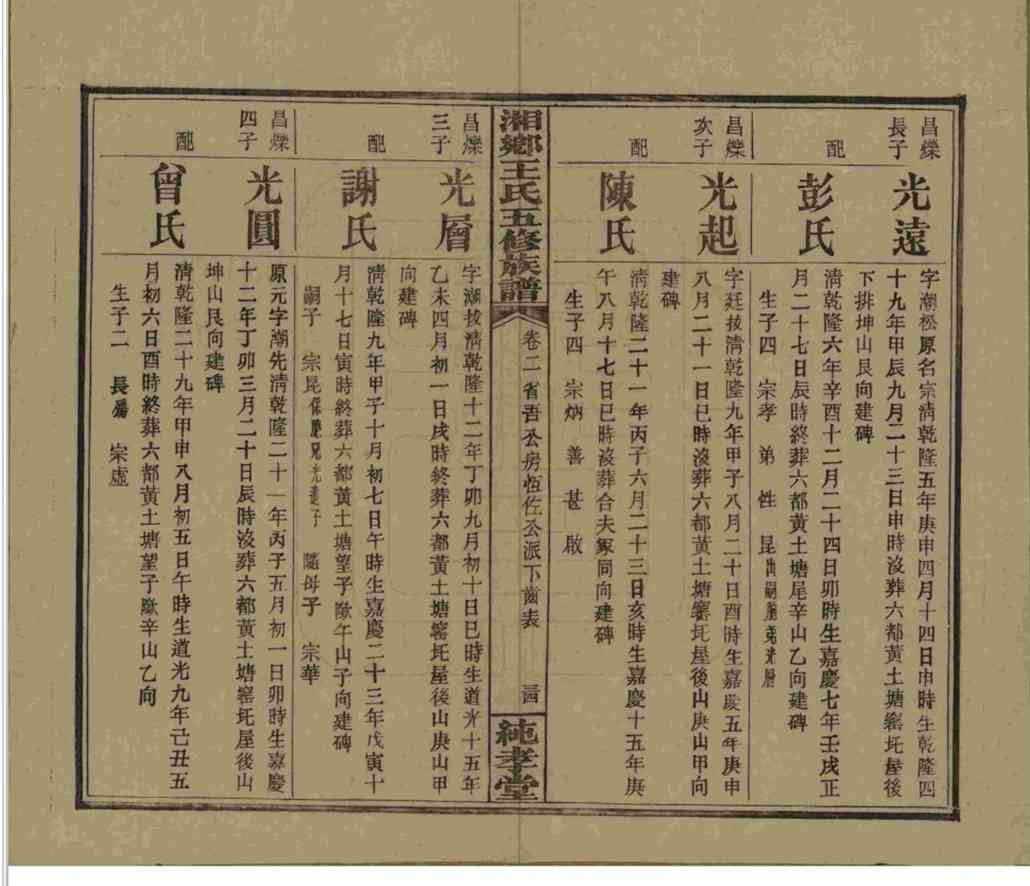 昌爍長子
光遠
字潮松原名宗清乾隆五年庚申四月十四日申時生乾隆四
十九年甲辰九月二十三日申時沒葬六都黃土塘窰圫屋後
下排坤山艮向建碑
配
彭氏
清乾隆六年辛酉十二月二十四日卯時生嘉慶七年壬戌正
月二十七日辰時終葬六都黃土塘尾辛山乙向建碑
生子四 宗孝 弟 性 昆出嗣胞弟光層
昌爍次子
光起
字廷拔清乾隆九年甲子八月二十日酉時生嘉慶五年庚申
八月二十一日巳時沒葬六都黃土塘窰圫屋後山庚山甲向
建碑
配
陳氏
清乾隆二十一年丙子六月二十三日亥時生嘉慶十五年庚
午八月十七日巳時沒葬合夫冢同向建碑
生子四 宗炳 善 甚 啟
湘鄉王氏五修族譜
卷二 省吾公房恆佐公派下齒表
三四
純孝堂
昌爍三子
光層
字潮拔清乾隆十二年丁卯九月初十日巳時生道光十五年
乙未四月初一日戌時終葬六都黃土塘窰圫屋後山庚山甲
向建碑
配
謝氏
清乾隆九年甲子十月初七日午時生嘉慶二十三年戊寅十
月十七日寅時終葬六都黃土塘望子墩午山子向建碑
嗣子 宗昆係胞兄光遠子 隨母子 宗華
昌爍四子
光圓
原元字潮先清乾隆二十一年丙子五月初一日卯時生嘉慶
十二年丁卯三月二十日辰時沒葬六都黃土塘窰圫屋後山
坤山艮向建碑
配
曾氏
清乾隆二十九年甲申八月初五日午時生道光九年己丑五
月初六日酉時終葬六都黃土塘望子墩辛山乙向
生子二 長殤 宗虛